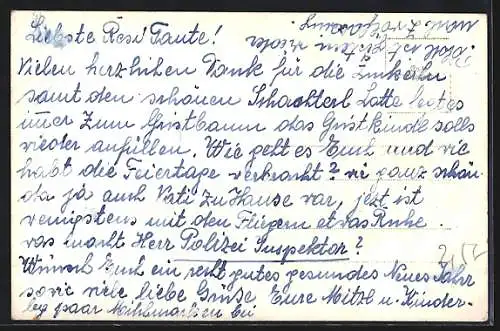 Liebste Resi Tante!
Vielen herzlichen Dank für die
samt den schönen Schachterl
zum Gristbaum das Gristkindl solls
wieder anfüllen. Wie geht es Euch und wie
habt die Feiertage verbracht? wir ganz schön
da ja auch Vati zu Hause war, jetzt ist
wenigstens mit den Fliegern etwas Ruhe.
was macht Herr Polizei Inspektor?
Wünsch Euch ein recht gutes gesundes Neues Jahr
sowie viele liebe Grüße Eure Mitzl u. Kinder.
leg paar bei